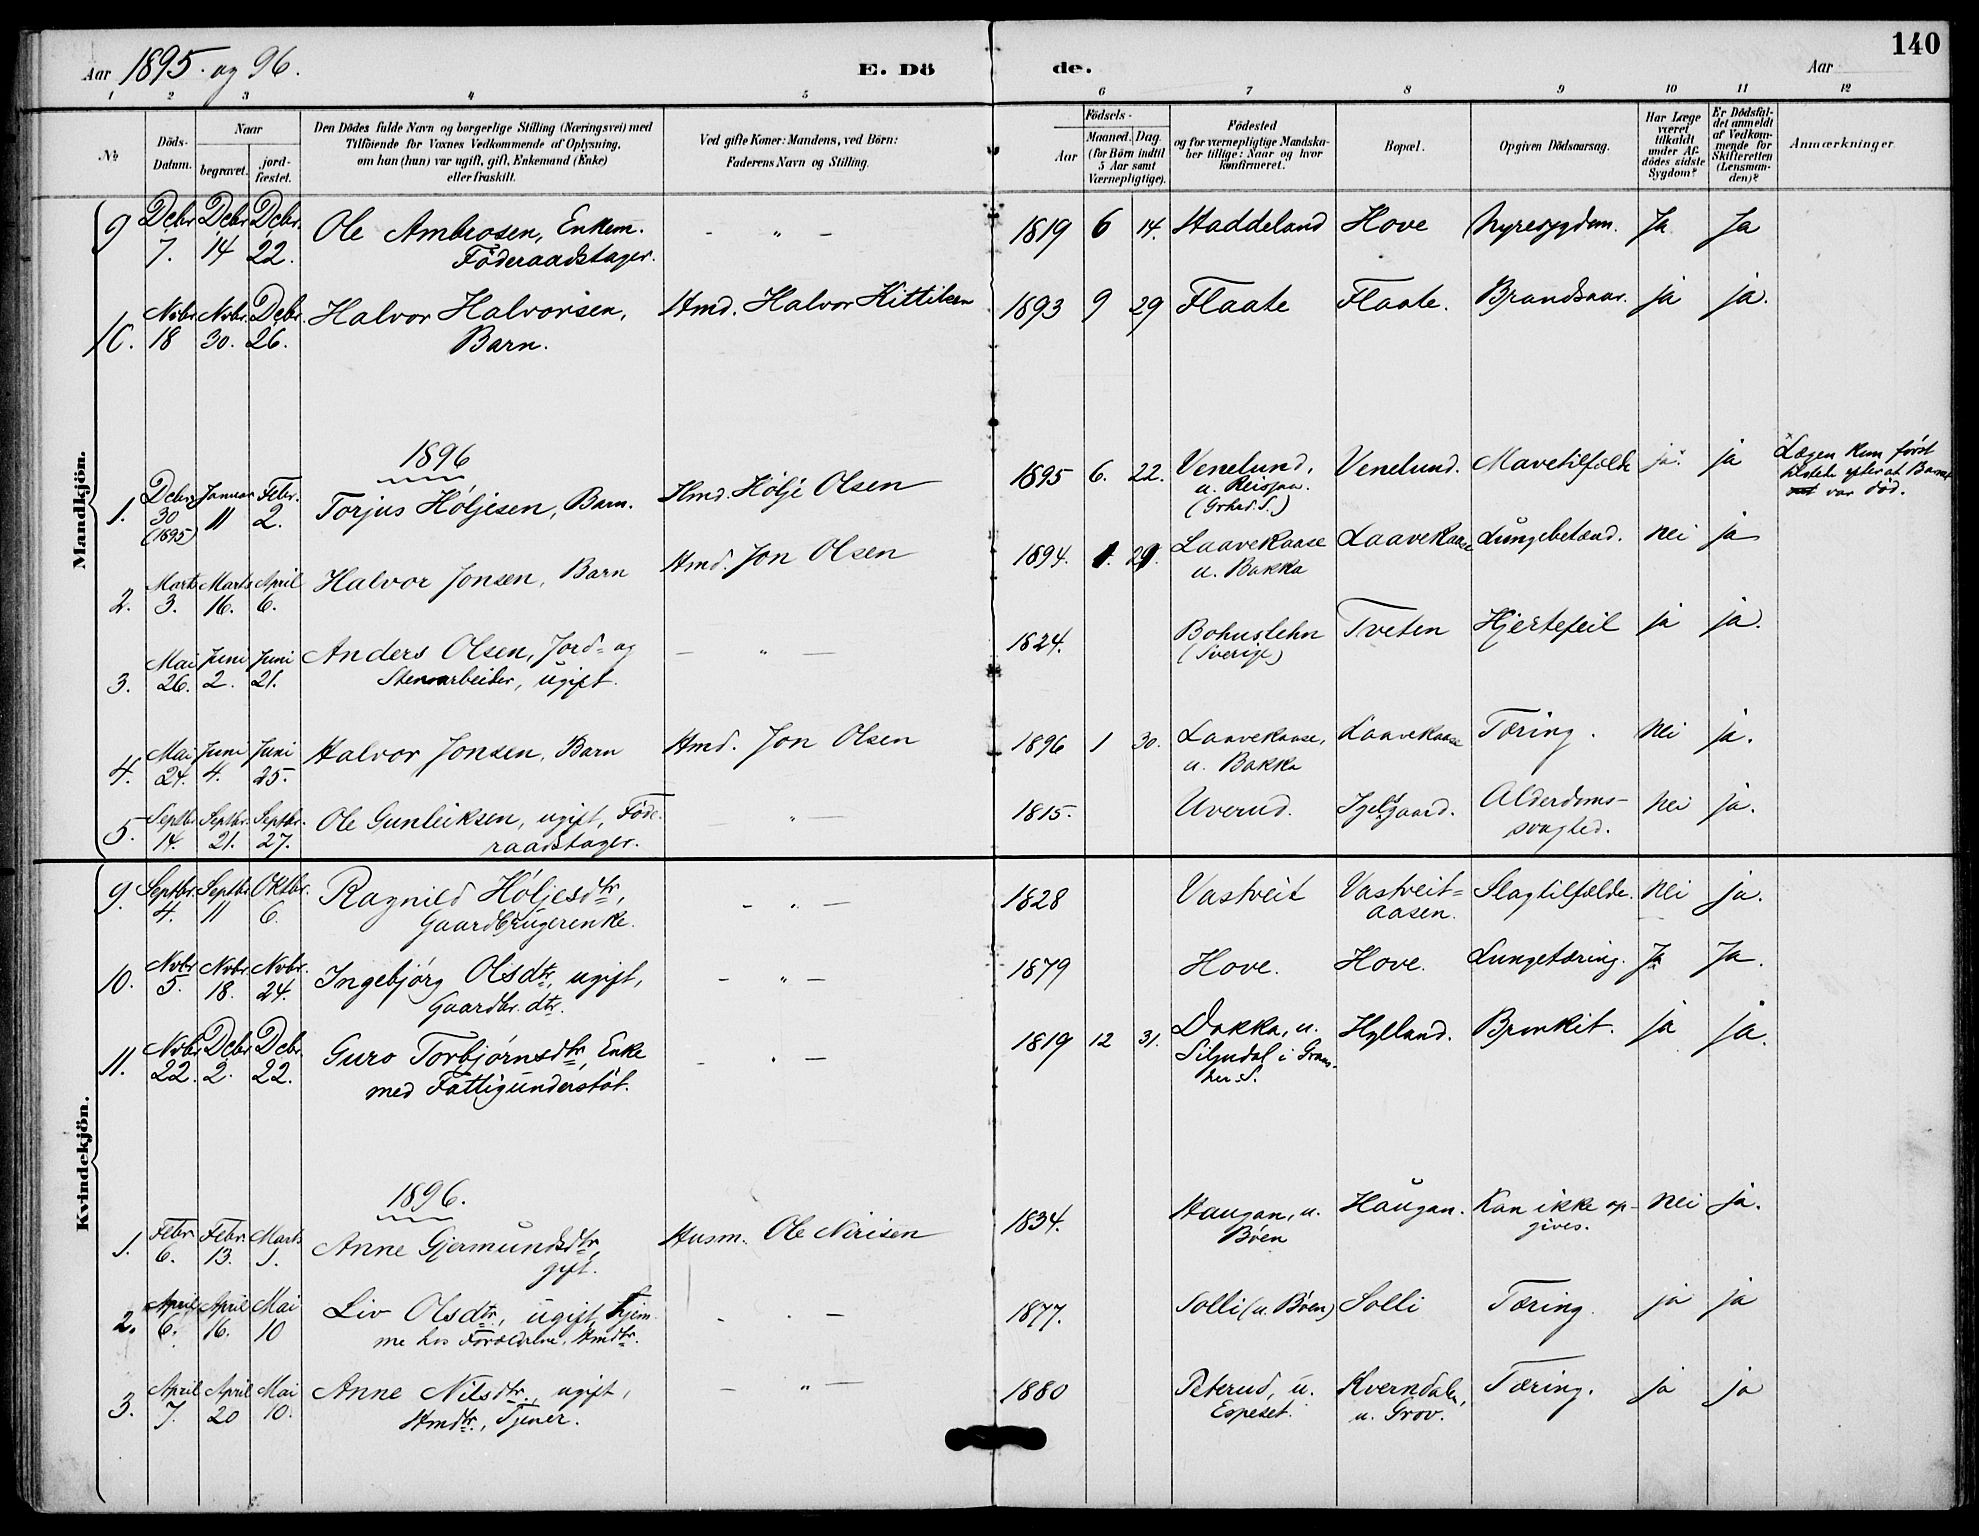 140
Aar 1895. og 96. E. Dö de. Aar
1 2 3 4 5 6 7 8 9 10 11 12
No. Döds-Datum. Naar begravet. jordfæstet. Den Dödes fulde Navn og borgerlige Stilling (Næringsvei) med Tilföiende for Voxnes Vedkommende af Oplysning, om han (hun) var ugift, gift, Enkemand (Enke) eller fraskilt. Ved gifte Koner: Mandens, ved Börn: Faderens Navn og Stilling. Födsels- Aar Maaned. Dag. (for Börn indtil 5 Aar samt Værnepligtige). Födested og for værnepligtige Mandskaber tillige: Naar og hvor konfirmeret. Bopæl. Opgiven Dödsaarsag. Har Læge været tilkaldt under Afdödes sidste Sygdom? Er Dödsfaldet anmeldt af Vedkommende for Skifteretten (Lensmanden)? Anmærkninger
Mandkjön.
9 Dcbr. 7. Dcbr. 14 Dcbr. 22. Ole Ambrosen, Enkem. Föderaadstager. - " - 1819 6 14. Haddeland Hove Nyresygdom. Ja Ja
10. Nvbr. 18 Nvbr. 30. Dcbr. 26. Halvor Halvorsen, Barn. Hmd. Halvor Kittilsen 1893 9 29 Flaate Flaate. Brandsaar. ja ja.
1896
1. Dcbr. 30 (1895) Januar 11 Febr. 2. Torjus Høljesen, Barn. Hmd. Hölje Olsen 1895 6. 22. Venelund, u. Reisjaa. (Grhed. S.) Venelund. Mavetilfælde ja. ja Lægen kom först tilstede efterat Barnet var död.
2. Marts 3. Marts 16. April 6. Halvor Jonsen, Barn Hmd. Jon Olsen 1894. 1. 29. Laavekaase u. Bakka Laavekaase Lungebetænd. nei ja
3. Mai 26. Juni 2. Juni 21. Anders Olsen, Jord- og Stenarbeider, ugift. - " - 1824. Bohuslehn (Sverige) Tveten Hjertefeil ja ja.
4. Mai 24. Juni 4. Juni 25. Halvor Jonsen, Barn Hmd. Jon Olsen 1896 1 30. Laavekaase, u. Bakka Laavekaase Tæring. nei ja.
5. Septbr. 14. Septbr. 21. Septbr. 27. Ole Gunleiksen, ugift, Föderaadstager. - " - 1815. Uverud. Igelsgaard. Alderdoms-svaghed. nei ja.
Kvindekjön.
9. Septbr. 4. Septbr. 11 Oktbr. 6. Ragnild Høljesdtr., Gaardbrugerenke. - " - 1828 Vastveit Vastveit-aasen. Slagtilfælde. nei ja.
10. Nvbr. 5. Nvbr. 18. Nvbr. 24. Ingebjörg Olsdtr., ugift, Gaardbr. dtr. - " - 1879 Hove. Hove. Lungetæring. Ja Ja.
11. Nvbr. 22. Dcbr. 2. Dcbr. 22. Guro Torbjørnsdtr., Enke med Fattigunderstöt. - " - 1819 12 31. Dakka, u. Siljudal i Gransher. S. Hylland. Bronkit. ja ja.
1896.
1. Febr. 6. Febr. 13. Marts 1. Anne Gjermundsdtr., gift. Husm. Ole Nirisen 1834. Haugan, u. Böen Haugan. Kan ikke opgives. nei ja.
2. April 6. April 16. Mai 10 Liv Olsdtr., ugift, hjemme hos Forældrene, Hmdtr. - " - 1877. Solli (u. Böen) Solli Tæring. ja ja
3. April 7. April 20 Mai 10. Anne Nilsdtr., ugift, Hmdtr., Tjener. - " - 1880 Peterud, u. Espeset. Kverndalen, u. Grov. Tæring. ja ja